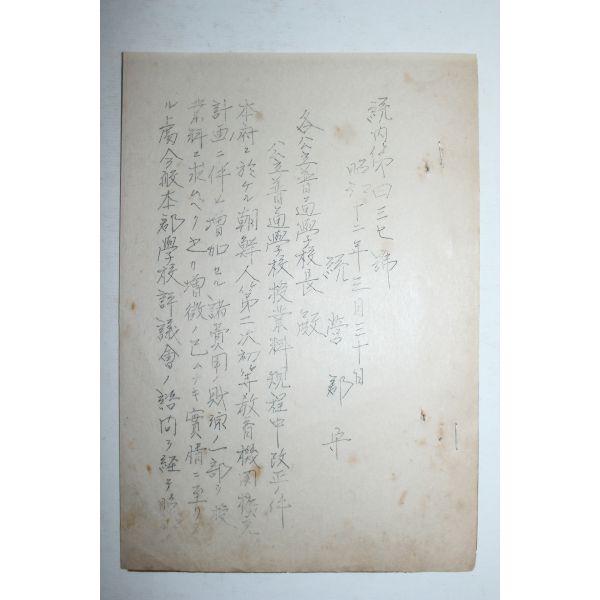 統內第四三七號
昭和十二年三月三十日
統營郡守
各公立普通學校長殿
公立普通學校授業料規程中改正ノ件
本府ニ於ケル朝鮮人第二次初等教育機関拡充
計画ニ伴ヒ增加セル諸費用ノ財源ノ一部ヲ授
業料ニ求ムベク之ガ增徵ノ已ムナキ實情ニ至リタ
ル處今般本郡學校評議會ノ諮問ヲ経テ昭